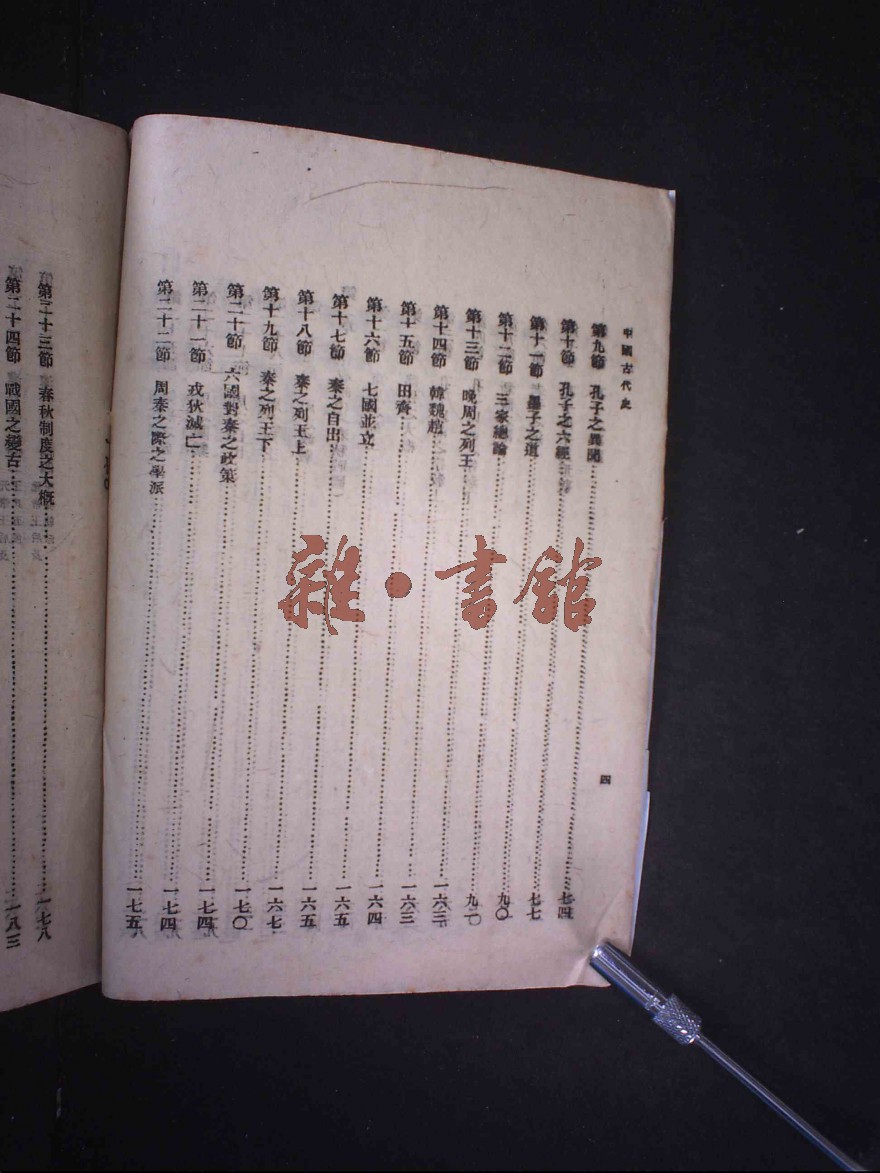 中國古代史
四
第九節　孔子之異聞……七四
第十節　孔子之六經……七七
第十一節　墨子之道……九〇
第十二節　三家總論……九二
第十三節　晚周之列王……一六三
第十四節　韓魏趙……一六三
第十五節　田齊……一六四
第十六節　七國並立……一六五
第十七節　秦之自出……一六五
第十八節　秦之列王上……一六七
第十九節　秦之列王下……一七〇
第二十節　六國對秦之政策……一七四
第二十一節　戎狄滅亡……一七四
第二十二節　周秦之際之學派……一七五
第二十三節　春秋制度之大概……一七八
第二十四節　戰國之變古……一八三
雜·書館